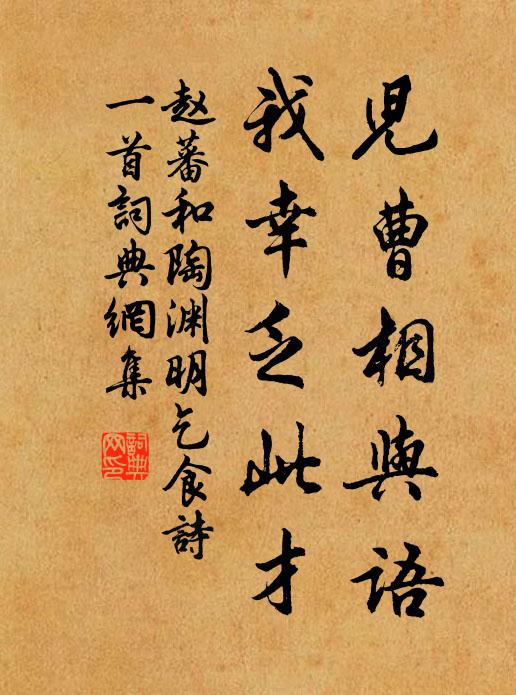 兒曹相與語
我幸乏此才
赵蕃和陶渊明乞食詩
一首詞典網集
詞典
网印